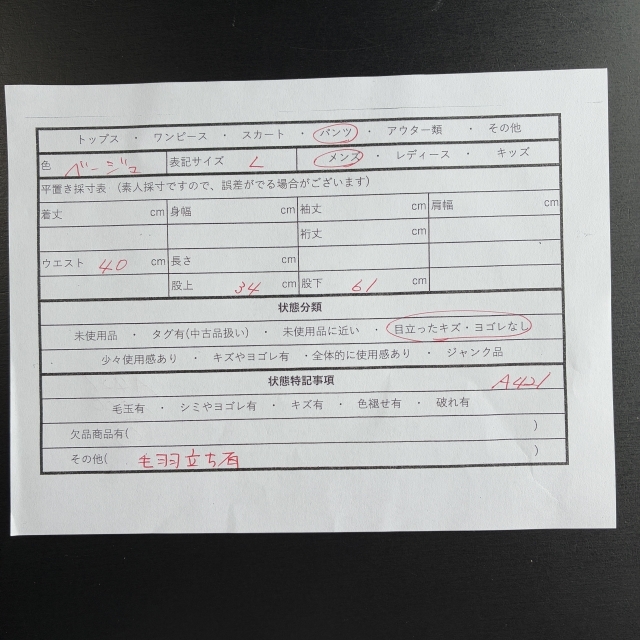 トップス ・ ワンピース ・ スカート ・ パンツ ・ アウター類 ・ その他
色 ベージュ 表記サイズ L メンズ ・ レディース ・ キッズ
平置き採寸表 （素人採寸ですので、誤差がでる場合がございます）
着丈 cm 身幅 cm 袖丈 cm 肩幅 cm
裄丈 cm
ウエスト 40 cm 長さ cm
股上 34 cm 股下 61 cm
状態分類
未使用品 ・ タグ有(中古品扱い) ・ 未使用品に近い ・ 目立ったキズ・ヨゴレなし
少々使用感あり ・ キズやヨゴレ有 ・全体的に使用感あり ・ ジャンク品
状態特記事項 A421
毛玉有 ・ シミやヨゴレ有 ・ キズ有 ・ 色褪せ有 ・ 破れ有
欠品商品有( )
その他( 毛羽立ち有 )